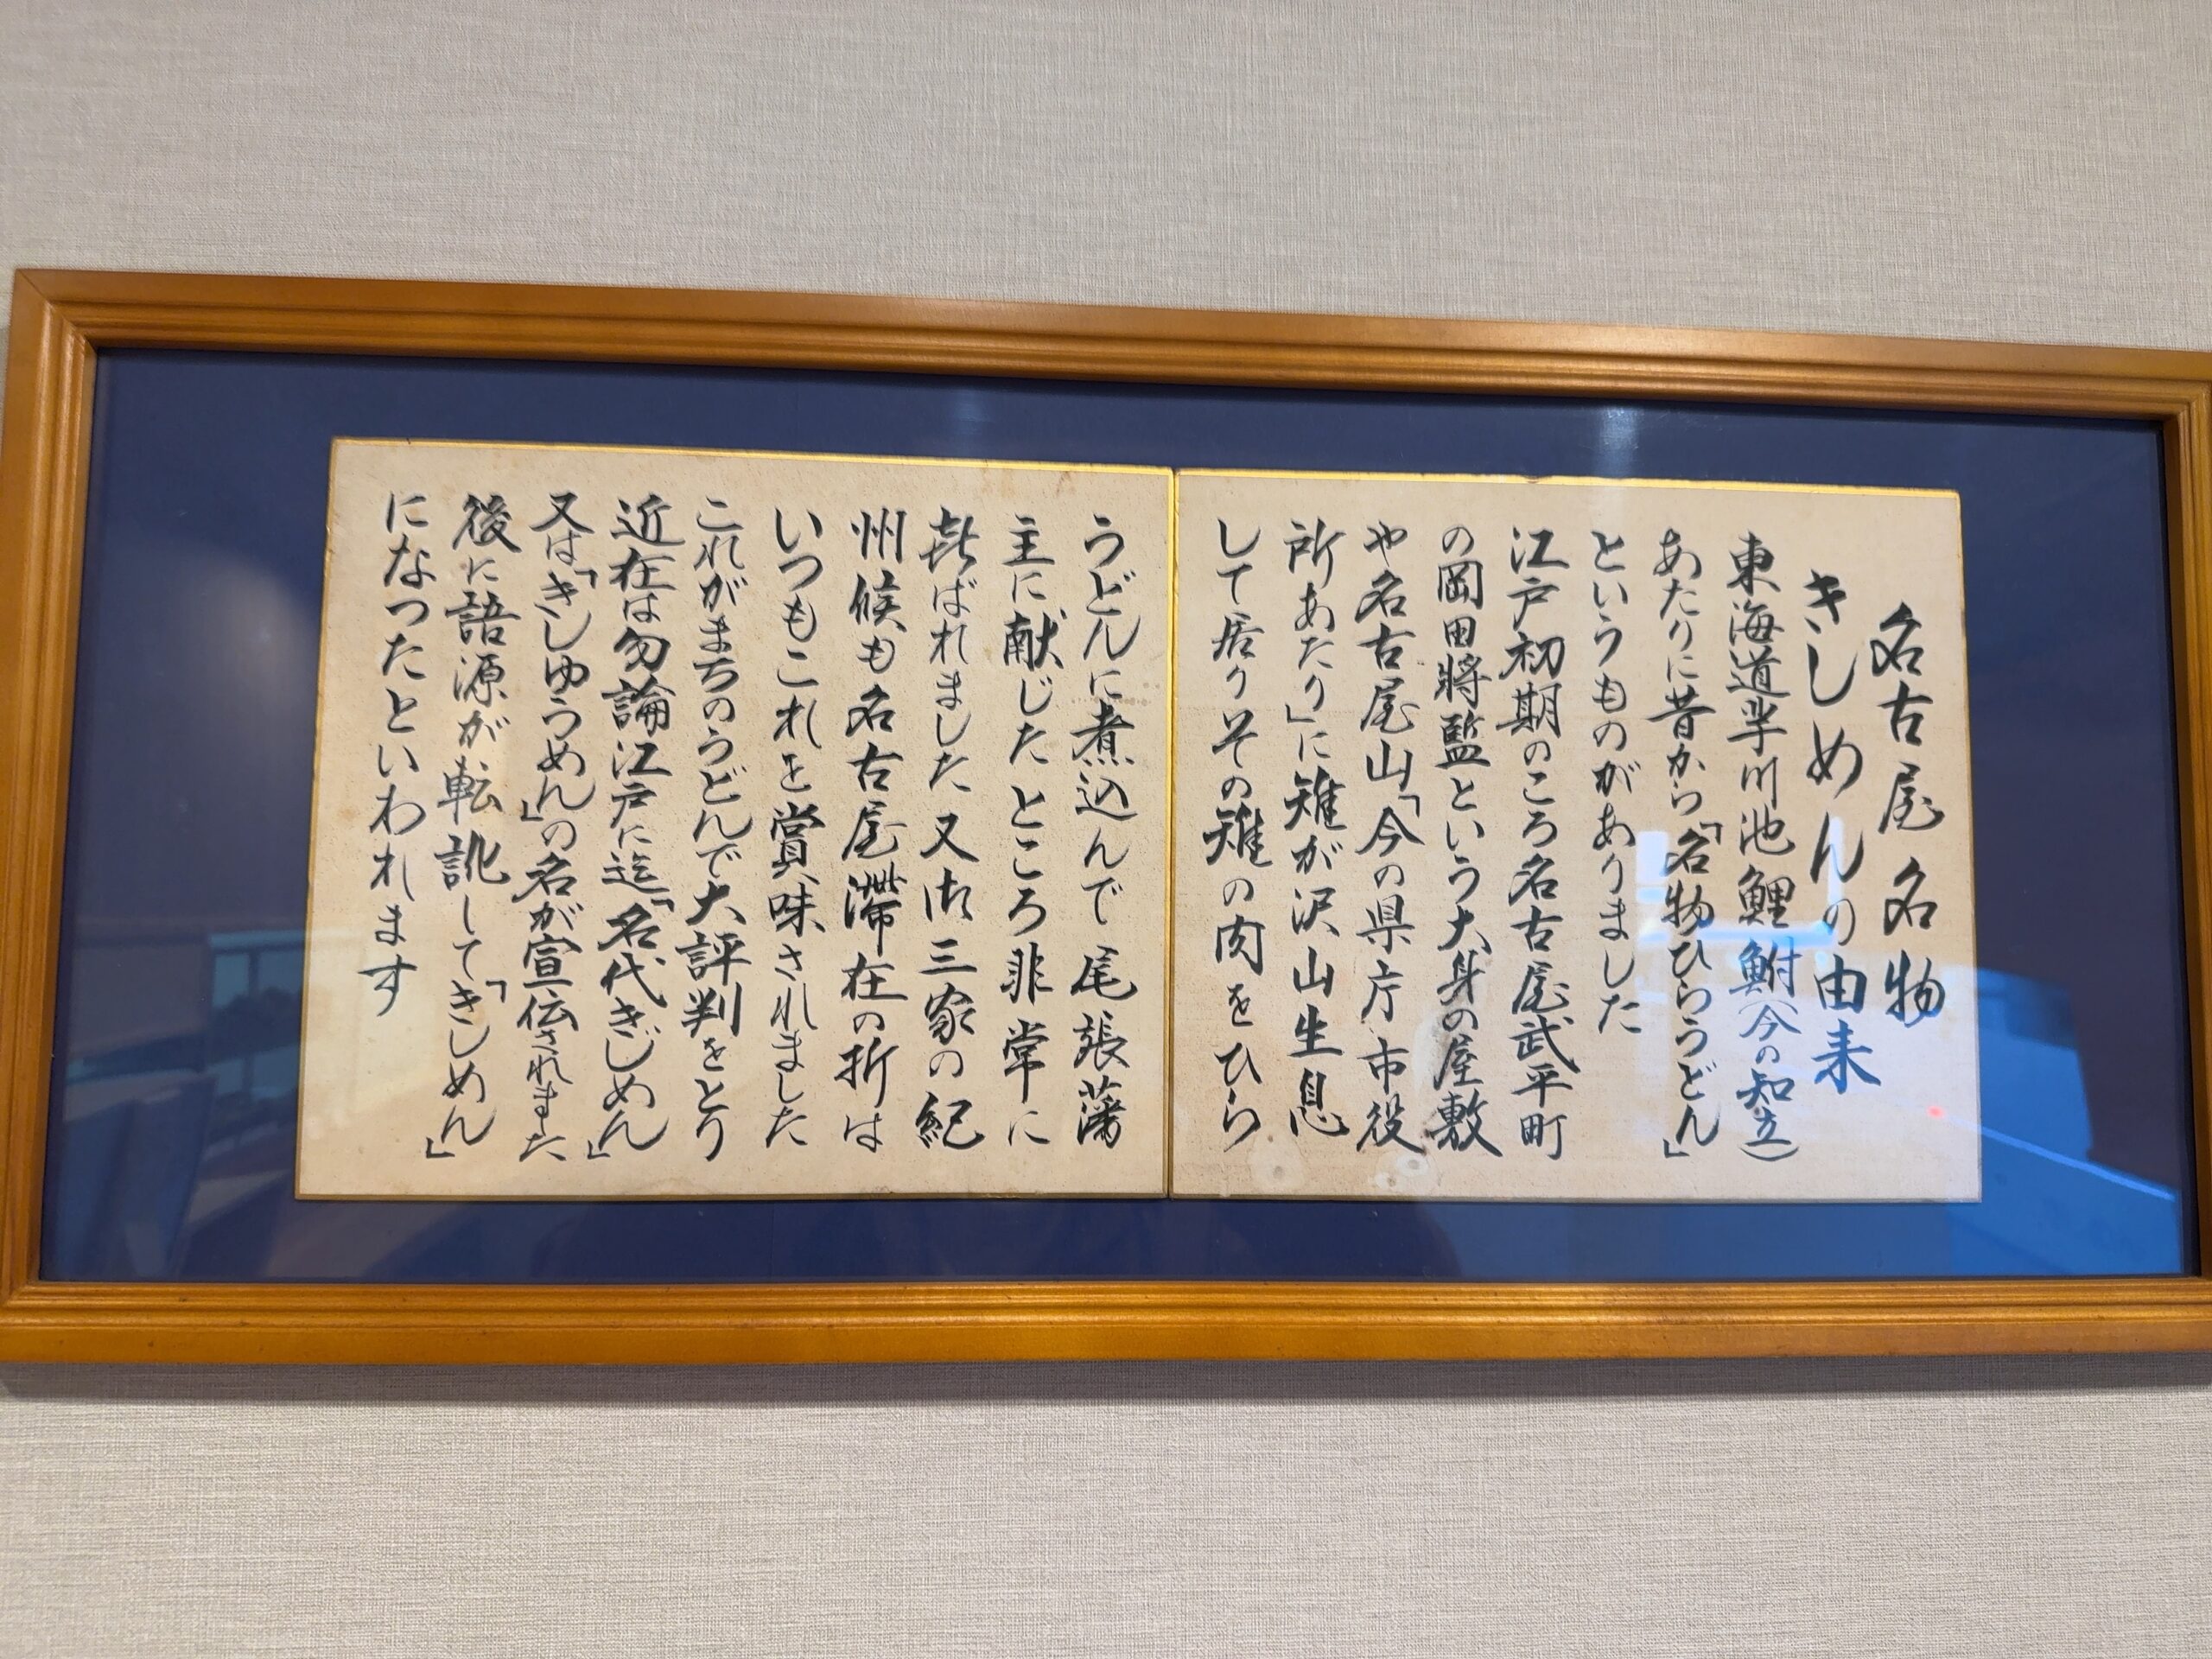 名古屋名物
きしめんの由来
東海道芋川池鯉鮒(今の知立)
あたりに昔から「名物ひらうどん」
というものがありました
江戸初期のころ名古屋武平町
の岡田將監という大身の屋敷
や名古屋山「今の県庁市役
所あたり」に雉が沢山生息
して居りその雉の肉をひら
うどんに煮込んで尾張藩
主に献じたところ非常に
喜ばれました又御三家の紀
州候も名古屋滞在の折は
いつもこれを賞味されました
これがまちのうどんで大評判をとり
近在は勿論江戸に迄「名代きじめん」
又は「きしゆうめん」の名が宣伝されました
後に語源が転訛して「きしめん」
になつたといわれます